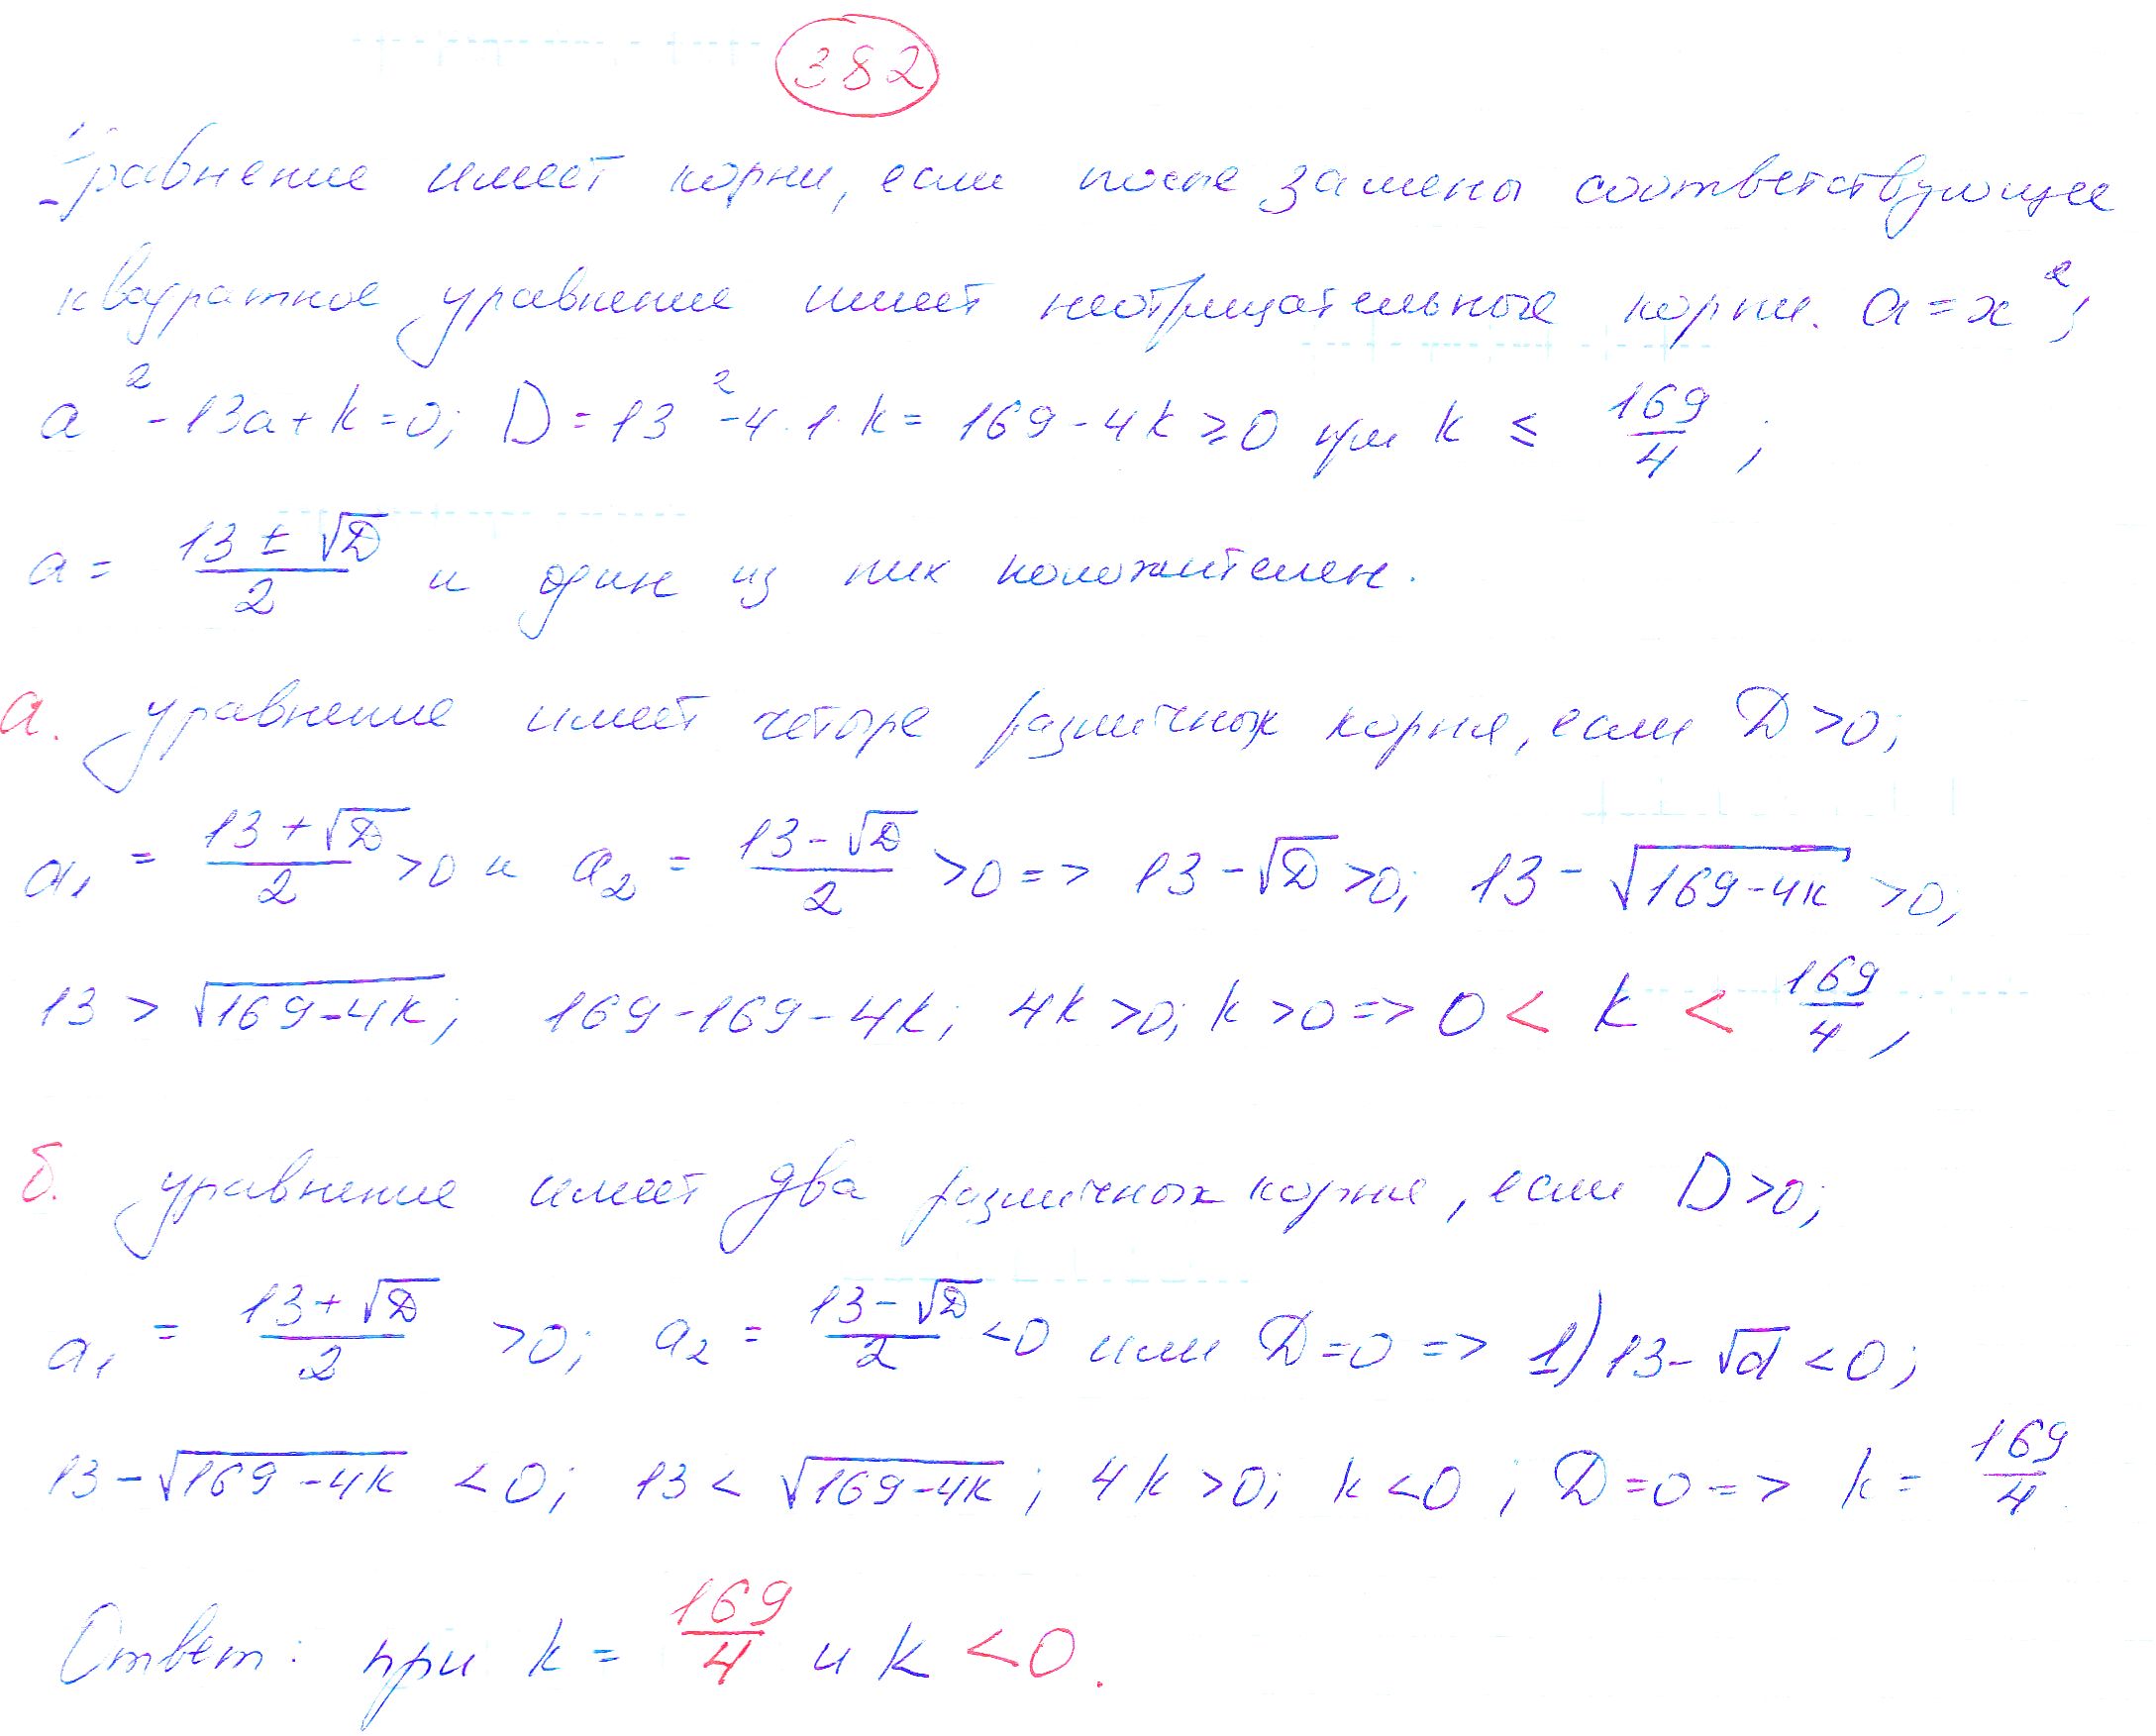 382
Уравнение имеет корни, если после замены соответствующее
квадратное уравнение имеет неотрицательные корни. a = x²;
a² - 13a + k = 0; D = 13² - 4·1·k = 169 - 4k ≥ 0 при k ≤ 169/4;
a = (13 ± √D)/2 и один из них положителен.
а. уравнение имеет четыре различных корня, если D > 0;
a₁ = (13 + √D)/2 > 0 и a₂ = (13 - √D)/2 > 0 => 13 - √D > 0; 13 - √(169 - 4k) > 0;
13 > √(169 - 4k); 169 - 169 - 4k; 4k > 0; k > 0 => 0 < k < 169/4,
б. уравнение имеет два различных корня, если D > 0;
a₁ = (13 + √D)/2 > 0; a₂ = (13 - √D)/2 < 0 или D = 0 => 1) 13 - √d < 0;
13 - √(169 - 4k) < 0; 13 < √(169 - 4k); 4k > 0; k < 0; D = 0 => k = 169/4.
Ответ: при k = 169/4 и k < 0.